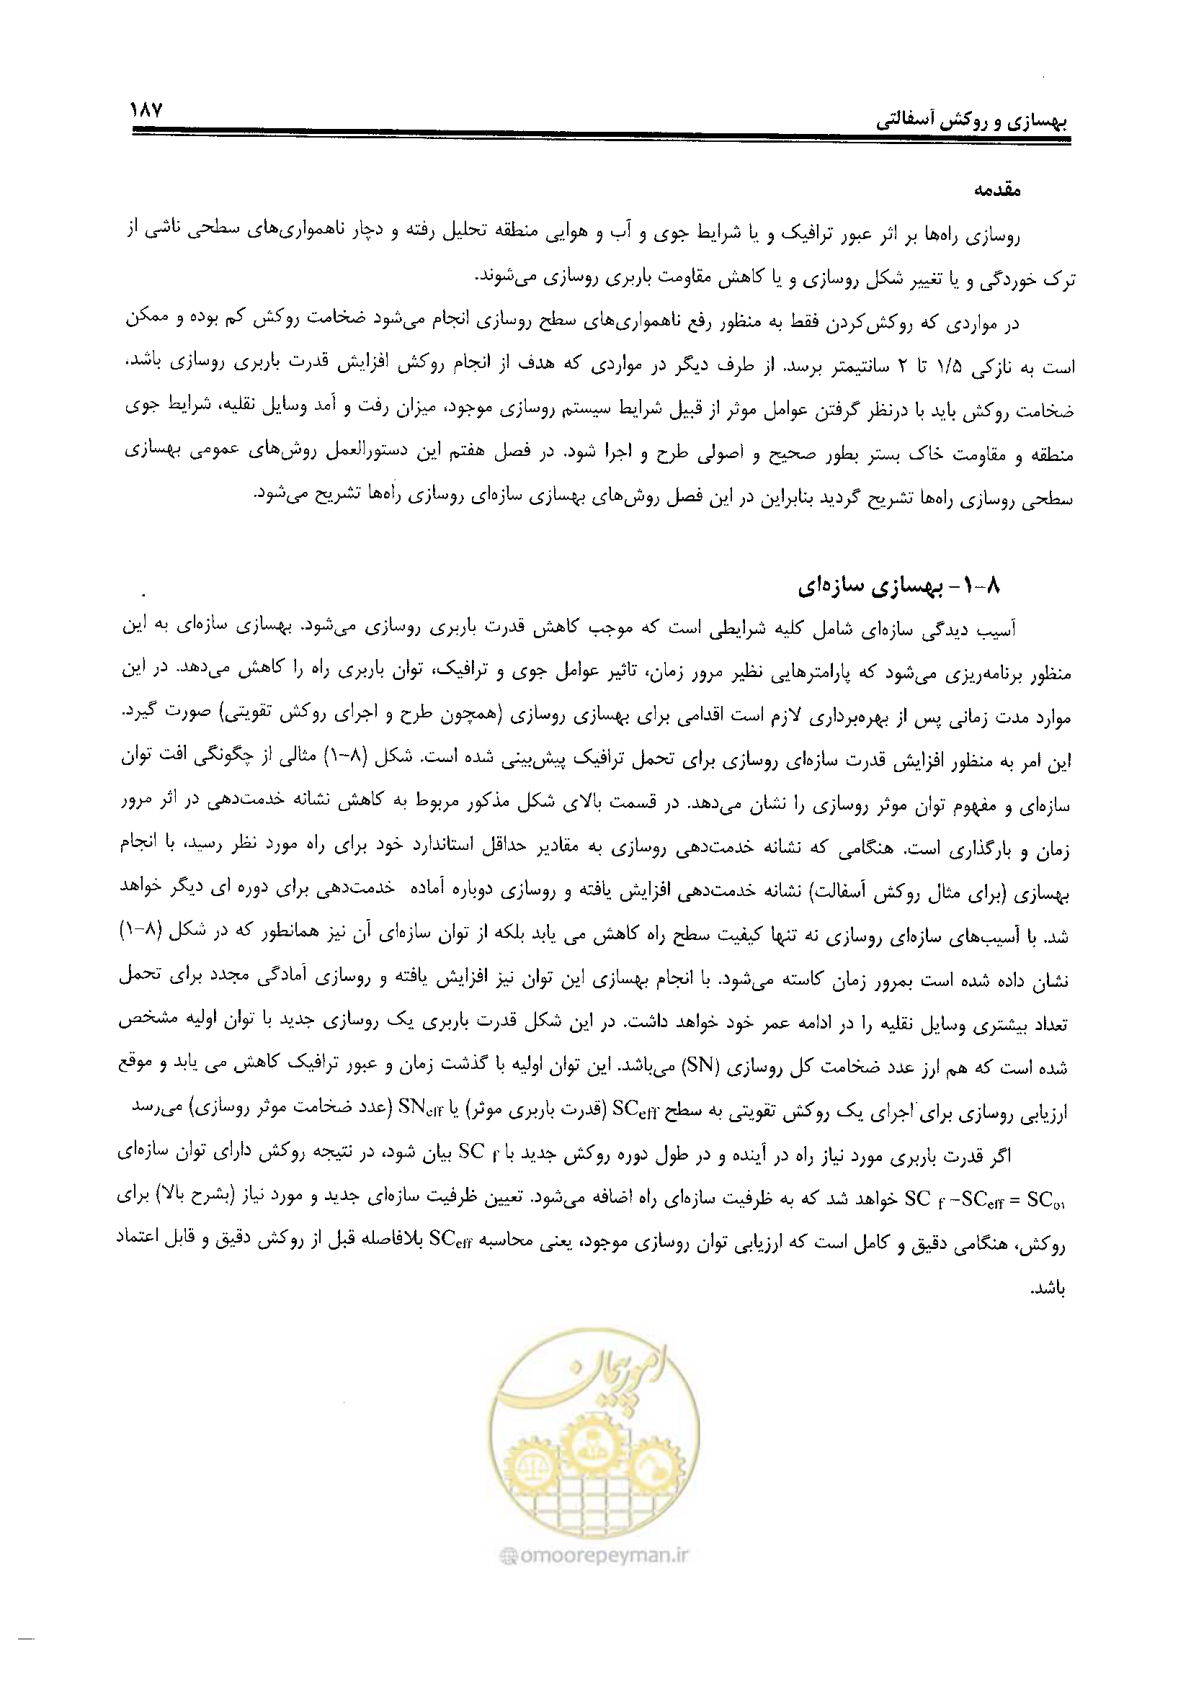 بهسازی و روکش آسفالتی
۱۸۷
مقدمه
روسازی راه‌ها بر اثر عبور ترافیک و یا شرایط جوی و آب و هوایی منطقه تحلیل رفته و دچار ناهمواری‌های سطحی ناشی از
ترک خوردگی و یا تغییر شکل روسازی و یا کاهش مقاومت باربری روسازی می‌شوند.
در مواردی که روکش‌کردن فقط به منظور رفع ناهمواری‌های سطح روسازی انجام می‌شود ضخامت روکش کم بوده و ممکن
است به نازکی ۱/۵ تا ۲ سانتیمتر برسد. از طرف دیگر در مواردی که هدف از انجام روکش افزایش قدرت باربری روسازی باشد،
ضخامت روکش باید با درنظر گرفتن عوامل موثر از قبیل شرایط سیستم روسازی موجود، میزان رفت و آمد وسایل نقلیه، شرایط جوی
منطقه و مقاومت خاک بستر بطور صحیح و اصولی طرح و اجرا شود. در فصل هفتم این دستورالعمل روش‌های عمومی بهسازی
سطحی روسازی راه‌ها تشریح گردید بنابراین در این فصل روش‌های بهسازی سازه‌ای روسازی راه‌ها تشریح می‌شود.
۸-۱- بهسازی سازه‌ای
آسیب دیدگی سازه‌ای شامل کلیه شرایطی است که موجب کاهش قدرت باربری روسازی می‌شود. بهسازی سازه‌ای به این
منظور برنامه‌ریزی می‌شود که پارامترهایی نظیر مرور زمان، تاثیر عوامل جوی و ترافیک، توان باربری راه را کاهش می‌دهد. در این
موارد مدت زمانی پس از بهره‌برداری لازم است اقدامی برای بهسازی روسازی (همچون طرح و اجرای روکش تقویتی) صورت گیرد.
این امر به منظور افزایش قدرت سازه‌ای روسازی برای تحمل ترافیک پیش‌بینی شده است. شکل (۸-۱) مثالی از چگونگی افت توان
سازه‌ای و مفهوم توان موثر روسازی را نشان می‌دهد. در قسمت بالای شکل مذکور مربوط به کاهش نشانه خدمت‌دهی در اثر مرور
زمان و بارگذاری است. هنگامی که نشانه خدمت‌دهی روسازی به مقادیر حداقل استاندارد خود برای راه مورد نظر رسید، با انجام
بهسازی (برای مثال روکش آسفالت) نشانه خدمت‌دهی افزایش یافته و روسازی دوباره آماده خدمت‌دهی برای دوره ای دیگر خواهد
شد. با آسیب‌های سازه‌ای روسازی نه تنها کیفیت سطح راه کاهش می یابد بلکه از توان سازه‌ای آن نیز همانطور که در شکل (۸-۱)
نشان داده شده است بمرور زمان کاسته می‌شود. با انجام بهسازی این توان نیز افزایش یافته و روسازی آمادگی مجدد برای تحمل
تعداد بیشتری وسایل نقلیه را در ادامه عمر خود خواهد داشت. در این شکل قدرت باربری یک روسازی جدید با توان اولیه مشخص
شده است که هم ارز عدد ضخامت کل روسازی (SN) می‌باشد. این توان اولیه با گذشت زمان و عبور ترافیک کاهش می یابد و موقع
ارزیابی روسازی برای اجرای یک روکش تقویتی به سطح SCeff (قدرت باربری موثر) یا SNeff (عدد ضخامت موثر روسازی) می‌رسد
اگر قدرت باربری مورد نیاز راه در آینده و در طول دوره روکش جدید با SC f بیان شود، در نتیجه روکش دارای توان سازه‌ای
SC f -SCeff = SCol خواهد شد که به ظرفیت سازه‌ای راه اضافه می‌شود. تعیین ظرفیت سازه‌ای جدید و مورد نیاز (بشرح بالا) برای
روکش، هنگامی دقیق و کامل است که ارزیابی توان روسازی موجود، یعنی محاسبه SCeff بلافاصله قبل از روکش دقیق و قابل اعتماد
باشد.
امور پیمان
omoorepeyman.ir